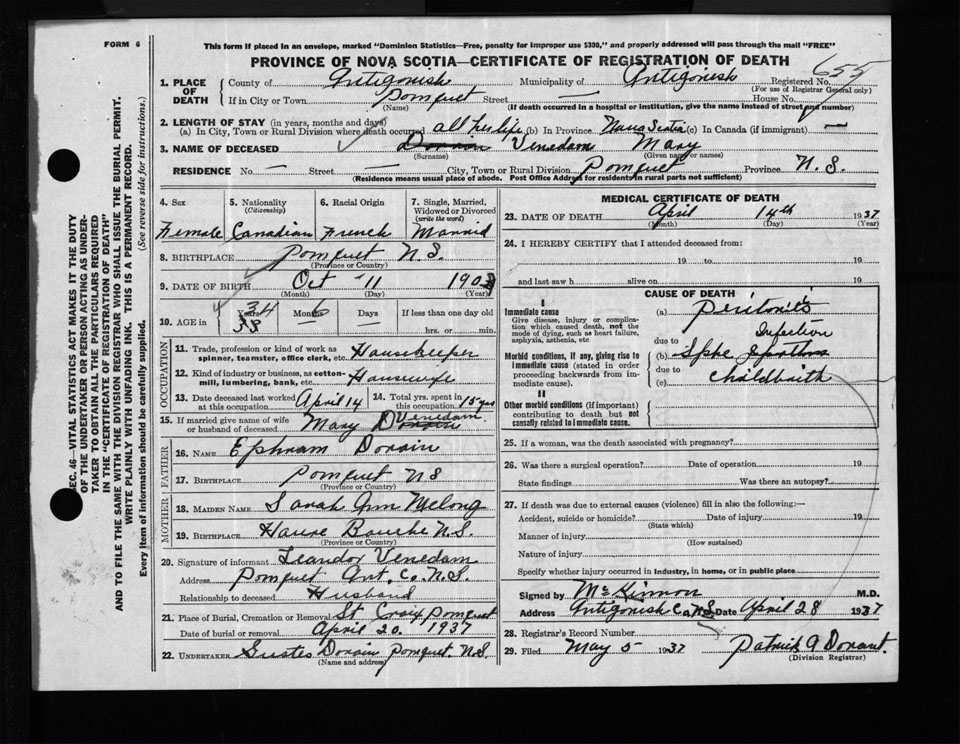 FORM 6
This form if placed in an envelope, marked "Dominion Statistics—Free, penalty for improper use $300," and properly addressed will pass through the mail "FREE"
PROVINCE OF NOVA SCOTIA—CERTIFICATE OF REGISTRATION OF DEATH
1. PLACE OF DEATH
County of Antigonish Municipality of Antigonish Registered No. 655
(For use of Registrar General only)
If in City or Town Pomquet Street House No.
(Name) (If death occurred in a hospital or institution, give the name instead of street and number)
2. LENGTH OF STAY (in years, months and days)
(a) In City, Town or Rural Division where death occurred all her life (b) In Province Nova Scotia (c) In Canada (if immigrant) —
3. NAME OF DECEASED Doroin Venedam Mary
(Surname) (Given name or names)
RESIDENCE No. — Street — City, Town or Rural Division Pomquet Province N.S.
(Residence means usual place of abode. Post Office Address for residents in rural parts not sufficient)
4. Sex 5. Nationality (Citizenship) 6. Racial Origin 7. Single, Married, Widowed or Divorced (write the word)
Female Canadian French Married
8. BIRTHPLACE Pomquet N.S.
(Province or Country)
9. DATE OF BIRTH Oct 11 1903
(Month) (Day) (Year)
10. AGE in Years Months Days If less than one day old
34 6
38 hrs. or min.
OCCUPATION
11. Trade, profession or kind of work as spinner, teamster, office clerk, etc. Housekeeper
12. Kind of industry or business, as cotton-mill, lumbering, bank, etc. Housewife
13. Date deceased last worked at this occupation April 14 14. Total yrs. spent in this occupation 15 yrs
15. If married give name of wife or husband of deceased Mary D Venedam Doroin
FATHER
16. NAME Ephram Doroin
17. BIRTHPLACE Pomquet NS
(Province or Country)
MOTHER
18. MAIDEN NAME Sarah Ann Melong
19. BIRTHPLACE Havre Bouche N.S.
(Province or Country)
20. Signature of informant Leandor Venedam
Address Pomquet Ant. Co. N.S.
Relationship to deceased Husband
21. Place of Burial, Cremation or Removal St Croix Pomquet
Date of burial or removal April 20. 1937
22. UNDERTAKER Sustes Doroin Pomquet. N.S.
(Name and address)
MEDICAL CERTIFICATE OF DEATH
23. DATE OF DEATH April 14th 1937
(Month) (Day) (Year)
24. I HEREBY CERTIFY that I attended deceased from:
19 to 19
and last saw h alive on 19
CAUSE OF DEATH
I
Immediate cause
Give disease, injury or complication which caused death, not the mode of dying, such as heart failure, asphyxia, asthenia, etc
(a) Peritonitis
due to Infection
Morbid conditions, if any, giving rise to immediate cause (stated in order proceeding backwards from immediate cause).
(b)
due to
(c) childbirth
II
Other morbid conditions (if important) contributing to death but not causally related to immediate cause.
25. If a woman, was the death associated with pregnancy?
26. Was there a surgical operation? Date of operation 19
State findings Was there an autopsy?
27. If death was due to external causes (violence) fill in also the following:—
Accident, suicide or homicide? Date of injury 19
(State which)
Manner of injury
(How sustained)
Nature of injury
Specify whether injury occurred in industry, in home, or in public place
Signed by McKinnon M.D.
Address Antigonish Co. N.S. Date April 28 1937
28. Registrar's Record Number
29. Filed May 5 1937 Patrick A Dorant.
(Division Registrar)
SEC. 46—VITAL STATISTICS ACT MAKES IT THE DUTY
OF THE UNDERTAKER OR PERSON ACTING AS UNDERTAKER TO OBTAIN ALL THE PARTICULARS REQUIRED
IN THE "CERTIFICATE OF REGISTRATION OF DEATH"
AND TO FILE THE SAME WITH THE DIVISION REGISTRAR WHO SHALL ISSUE THE BURIAL PERMIT.
WRITE PLAINLY WITH UNFADING INK. THIS IS A PERMANENT RECORD.
Every item of information should be carefully supplied. (See reverse side for instructions.)